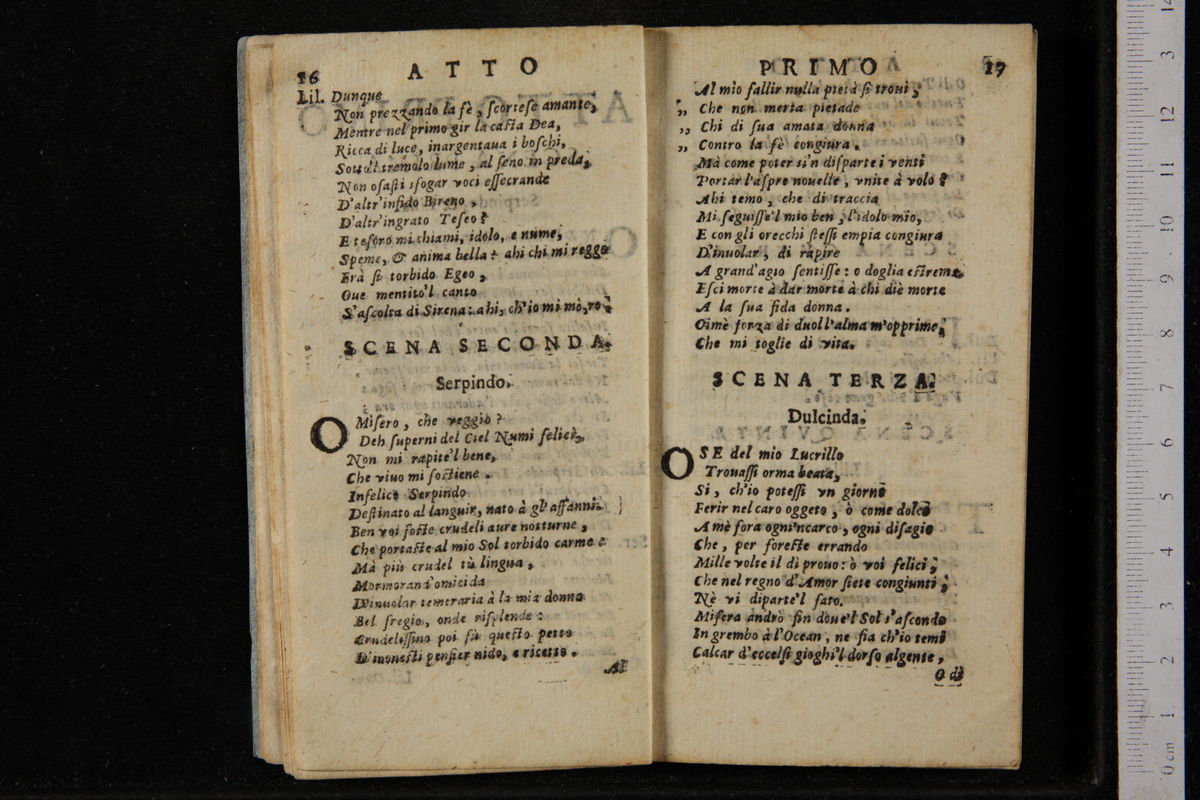 16 ATTO
Lil. Dunque
Non prezzando la fè, ſcorteſe amante,
Mentre nel primo gir la caſta Dea,
Ricca di luce, inargentaua i boſchi,
Sotto'l tremolo lume, al ſeno in preda,
Non oſaſti sfogar voci eſſecrande
D'altr'infido Bireno,
D'altr'ingrato Teſeo?
E teſoro mi chiami, idolo, e nume,
Speme, & anima bella? ahi chi mi regge
Frà ſi torbido Egeo,
Oue mentito'l canto
S'aſcolta di Sirena: ahi, ch'io mi mò,ro:
SCENA SECONDA.
Serpindo.
O Miſero, che veggio?
Deh ſuperni del Ciel Numi felici,
Non mi rapite'l bene,
Che viuo mi ſoſtiene.
Infelice Serpindo
Deſtinato al languir, nato à gl'affanni.
Ben voi foſte crudeli aure notturne,
Che portaſte al mio Sol torbido carme
Mà più crudel tù lingua,
Mormorand'omicida
D'inuolar temeraria à la mia donna
Bel fregio, onde riſplende:
Crudeliſſimo poi fù queſto petto
D'inoneſti penſier nido, e ricetto.
Al
PRIMO 17
Al mio fallir nulla pietà ſi troui,
„ Che non merta pietade
„ Chi di ſua amata donna
„ Contro la fè congiura.
Mà come poter sì'n diſparte i venti
Portar l'aſpre nouelle, vnite à volo?
Ahi temo, che di traccia
Mi ſeguiſſe'l mio ben, l'idolo mio,
E con gli orecchi ſteſſi empia congiura
D'inuolar, di rapire
A grand'agio ſentiſſe: o doglia eſtrema,
Eſci morte à dar morte à chi diè morte
A la ſua fida donna.
Oimè forza di duol l'alma m'opprime,
Che mi toglie di vita.
SCENA TERZA.
Dulcinda.
O SE del mio Lucrillo
Trouaſſi orma beata,
Si, ch'io poteſſi vn giorno
Ferir nel caro oggeto, ò come dolce
A mè fora ogni'ncarco, ogni diſagio
Che, per foreſte errando
Mille volte il dì prouo: ò voi felici,
Che nel regno d'Amor ſiete congiunti,
Nè vi diparte'l fato.
Miſera andrò fin doue'l Sol s'aſconde
In grembo à l'Ocean, ne fia ch'io temi
Calcar d'eccelſi gioghi'l dorſo algente,
O di